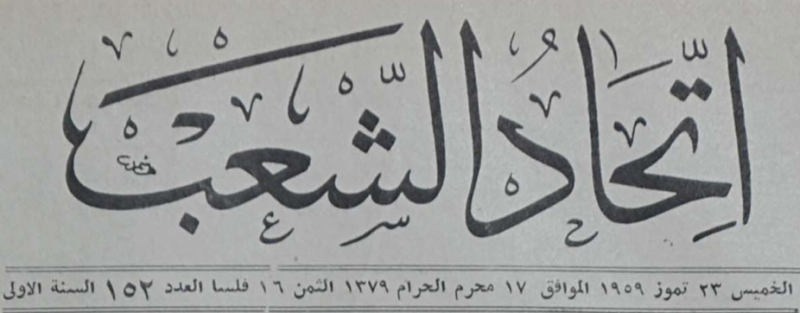 اتحاد الشعب
الخميس ٢٣ تموز ١٩٥٩ الموافق ١٧ محرم الحرام ١٣٧٩ الثمن ١٦ فلسا العدد ١٥٢ السنة الاولى